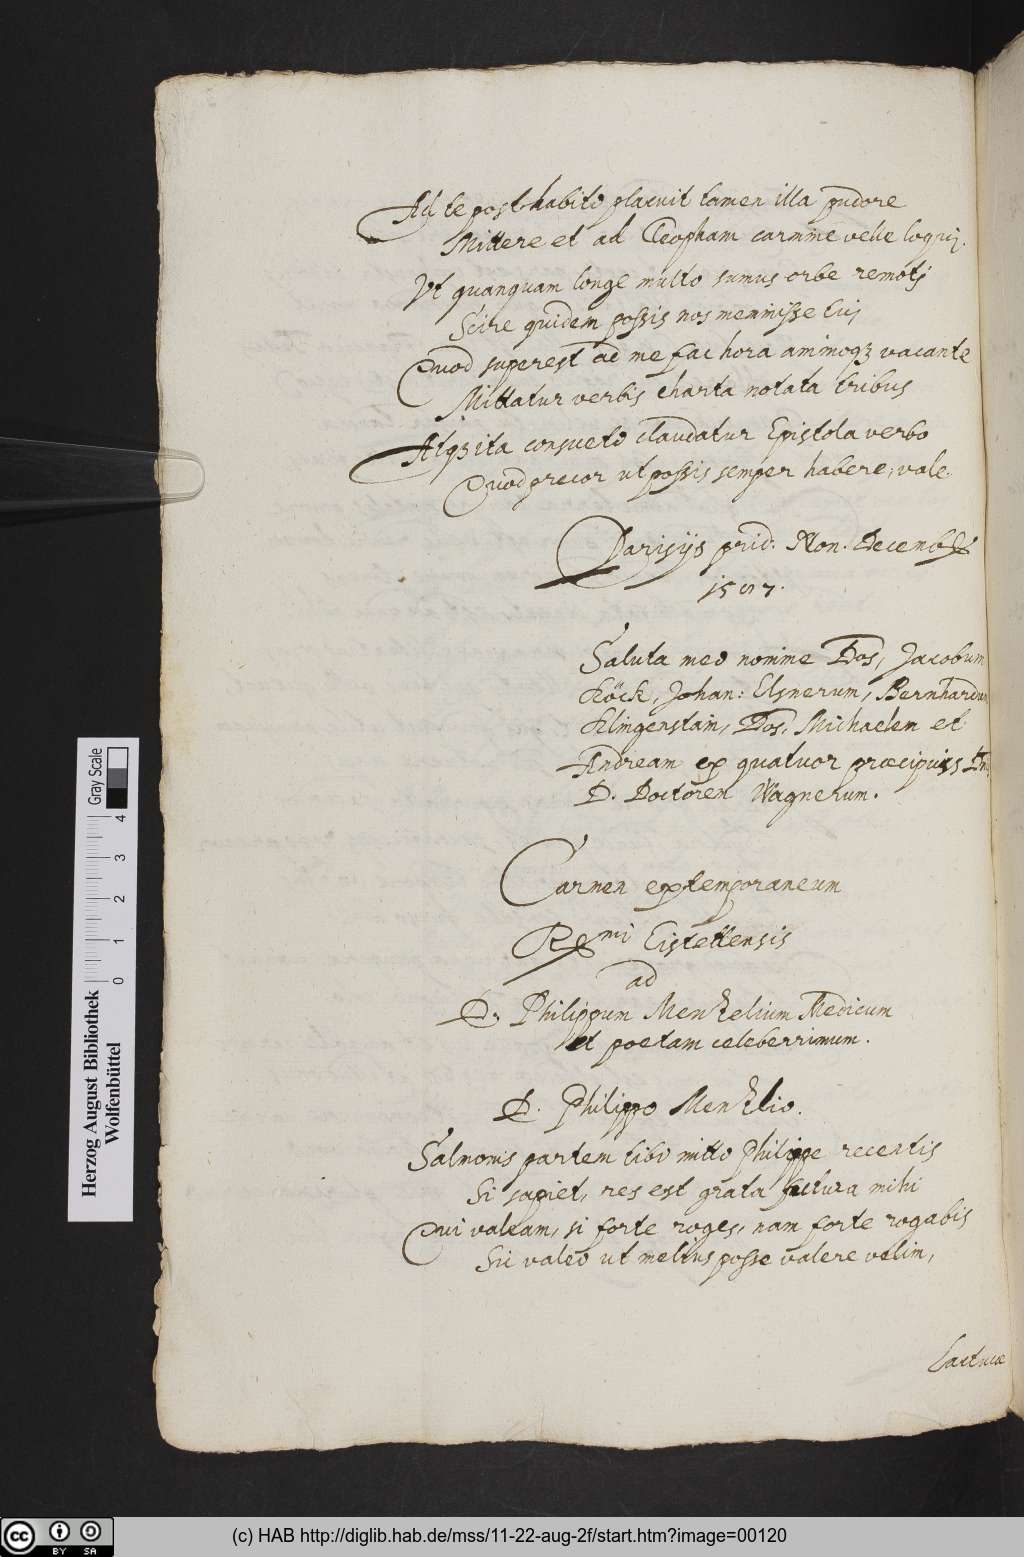 Ad te posthabito placuit tamen illa pudore
Mittere et ad Cleopham carmine velle loqui.
Ut quanquam longe multo sumus orbe remoti
Scire quidem possis nos meminisse tui
Quod superest ad me fac hora animoqȝ vacante
Mittatur verbis charta notata tribus
Atqȝ ita consueto claudatur Epistola verbo
Quod precor ut possis semper habere, vale.
Parisijs prid. Non. Decemb
Saluta meo nomine Dos, Jacobum
Köck, Johan: Elsnerum, Bernhardum
Klingenstain, Dos. Michaelem et
Andream ex quatuor præcipuis Dn.
D. Doctorem Wagnerum.
Carmen extemporaneum
Rmi Eistettensis
ad
D. Philippum Menzelium Medicum
et poetam celeberrimum.
D. Philippo Menzlio.
Salmonis partem tibi mitto Philippe recentis
Si sapiet, res est grata futura mihi
Qui valeam, si forte roges, nam forte rogabis
Sic valeo ut melius posse valere velim,
Lactucæ
Gray Scale
0 1 2 3 4
Herzog August Bibliothek
Wolfenbüttel
(c) HAB http://diglib.hab.de/mss/11-22-aug-2f/start.htm?image=00120
cc BY SA